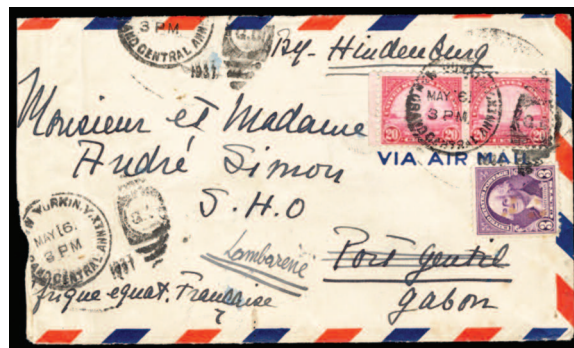 3 P.M.
AND CENTRAL ANN
1937
By - Hindenburg
MAY 16.
3 PM
GRAND CENTRAL ANN
20 20
VIA AIR MAIL
3 3
Monsieur et Madame
André Simon
S.H.O
Lambarene
Port Gentil
Gabon
YORK, N.Y.
MAY 16.
3 PM
AND CENTRAL ANNX
1937
frique equat. Française